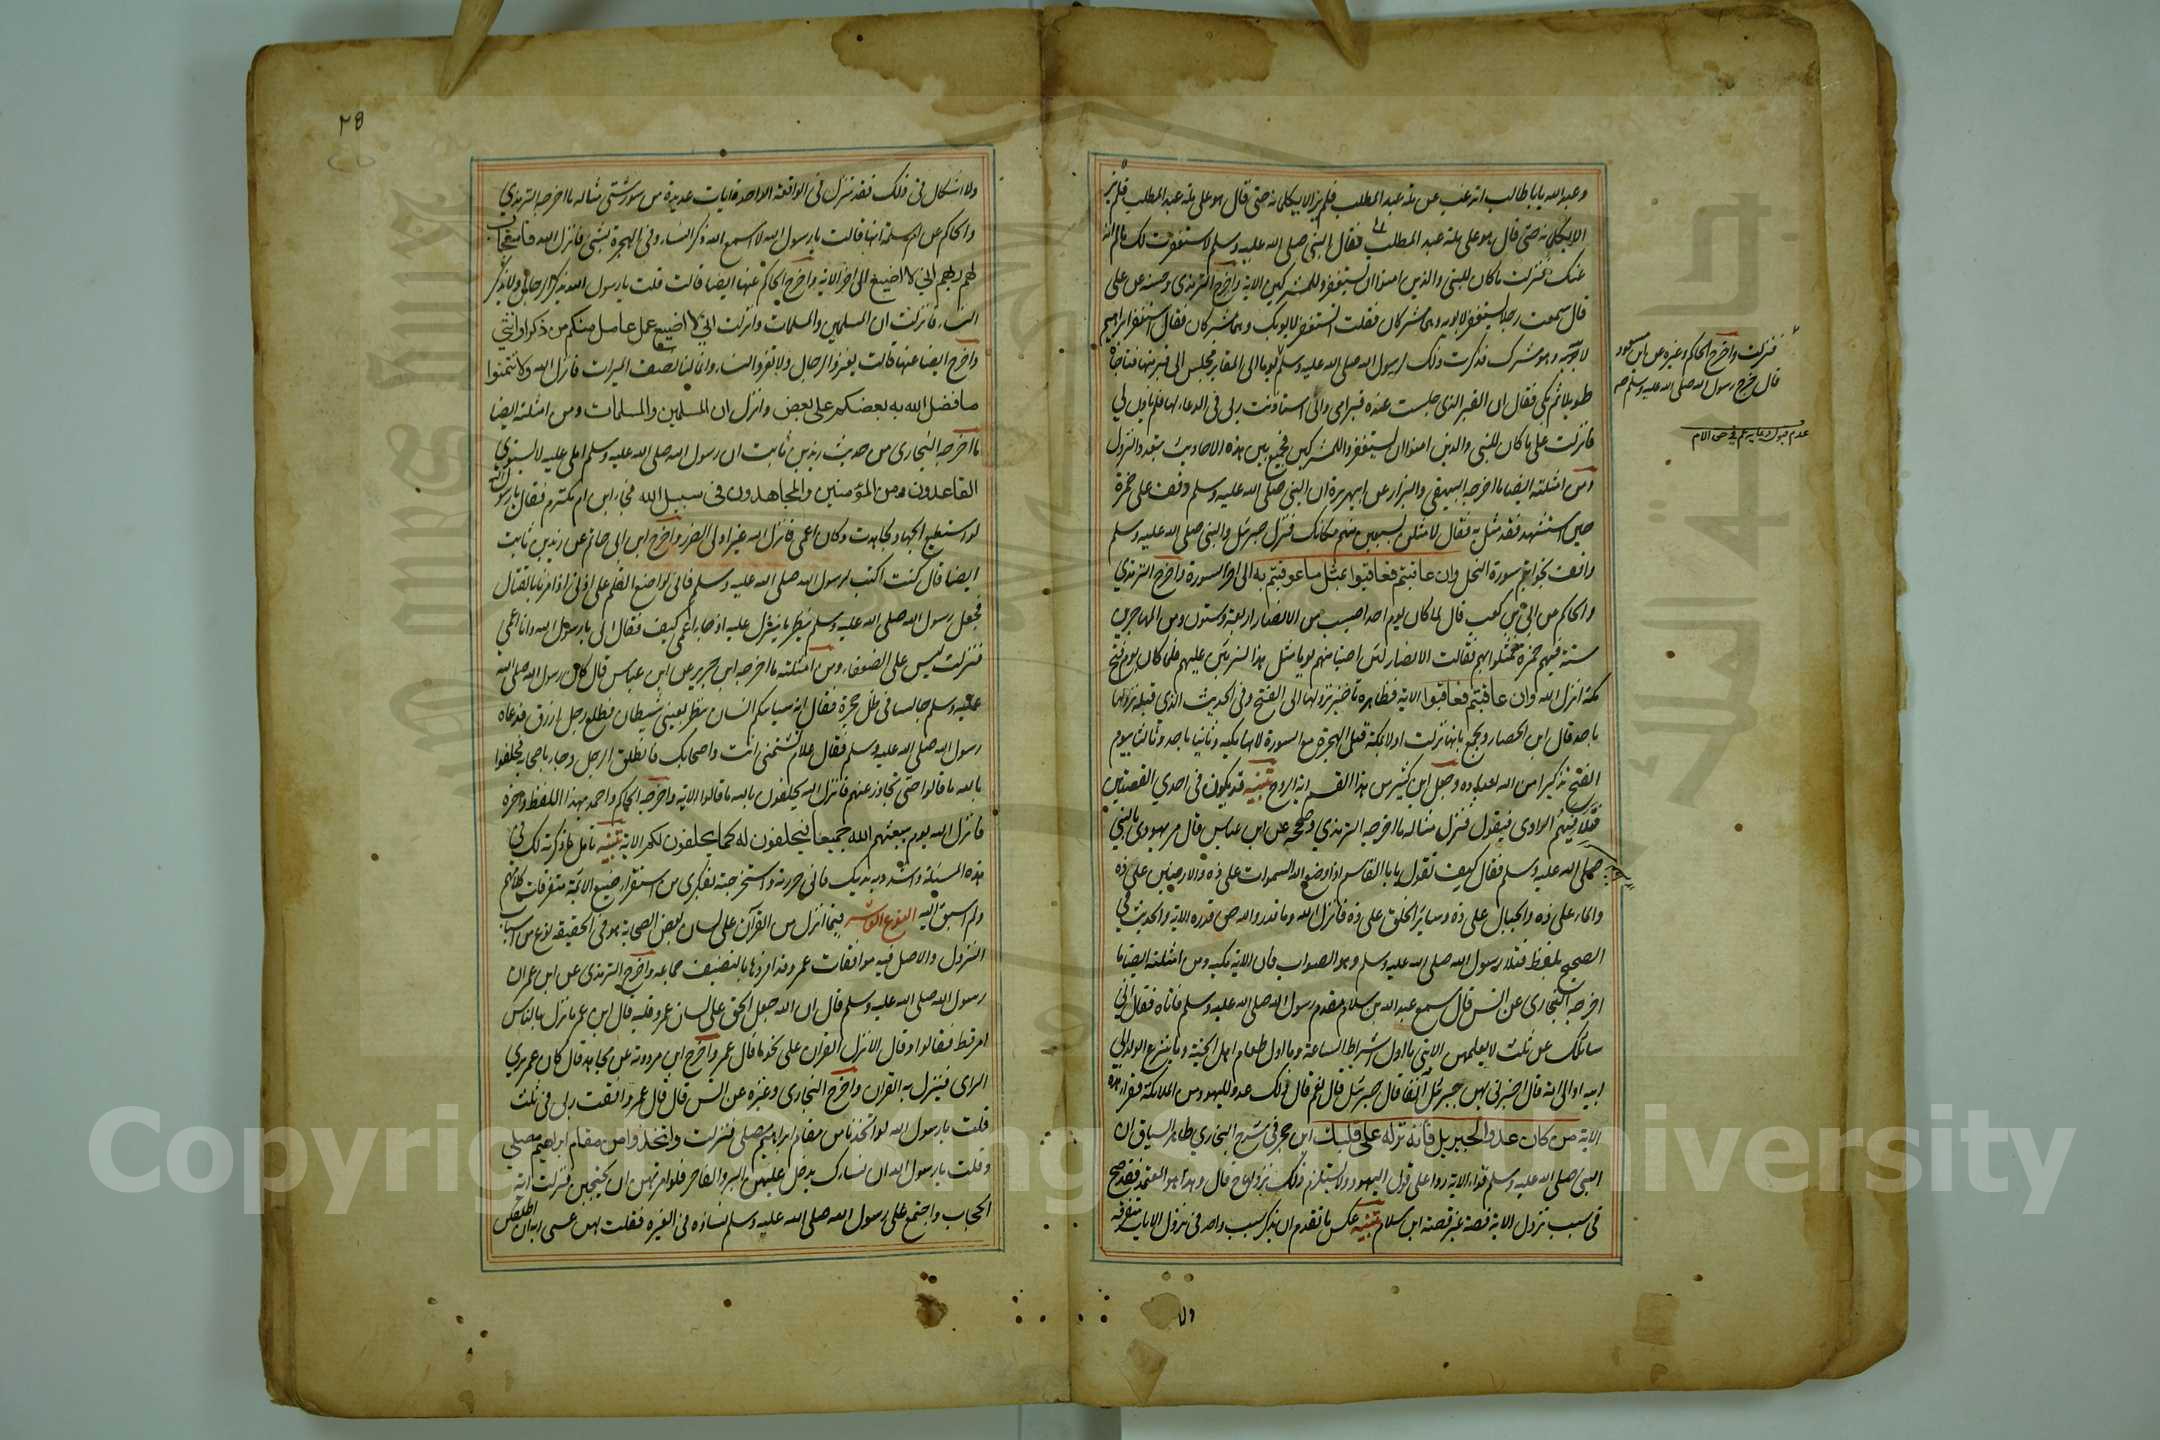 وعبد الله يا ابا طالب اترغب عن ملة عبد المطلب فلم يزالا يكلمانه حتى قال هو على ملة عبد المطلب فلم يز
الا يكلمانه حتى قال هو على ملة عبد المطلب فقال النبي صلى الله عليه وسلم لاستغفرن لك ما لم انه
عنك فنزلت ما كان للنبي والذين امنوا ان يستغفروا للمشركين الاية واخرج الترمذي وحسنه عن علي
قال سمعت رجلا يستغفر لابويه وهما مشركان فقلت اتستغفر لابويك وهما مشركان فقال استغفر ابراهيم
لابيه وهو مشرك فذكرت ذلك لرسول الله صلى الله عليه وسلم يوما الى المقابر فجلس الى قبر منها فناجاه
طويلا ثم بكى فقال ان القبر الذي جلست عنده قبر امي واني استاذنت ربي في الدعاء لها فلم ياذن لي
فانزلت علي ما كان للنبي والذين امنوا ان يستغفروا للمشركين فجمع بين هذه الاحاديث بتعدد النزول
ومن امثلته ايضا ما اخرجه البيهقي والبزار عن ابي هريرة ان النبي صلى الله عليه وسلم وقف على حمزة
حين استشهد فقد مثل به فقال لامثلن بسبعين منهم مكانك فنزل جبرئل والنبي صلى الله عليه وسلم
واقف بخواتيم سورة النحل وان عاقبتم فعاقبوا بمثل ما عوقبتم به الى اخر السورة واخرج الترمذي
والحاكم عن ابي بن كعب قال لما كان يوم احد اصيب من الانصار اربعة وستون ومن المهاجرين
ستة فيهم حمزة فمثلوا بهم فقالت الانصار لئن اصبنا منهم يوما مثل هذا لنربين عليهم فلما كان يوم فتح
مكة انزل الله وان عاقبتم فعاقبوا الاية فظاهره تاخير نزولها الى الفتح وفي الحديث الذي قبله نزولها
باحد قال ابن الحصار ويجمع بانها نزلت اولا بمكة قبل الهجرة مع السورة لانها مكية وثانيا باحد وثالثا بيوم
الفتح تذكيرا من الله لعباده وجعل ابن كثير من هذا القسم اية الروح تنبيه قد يكون في احدي القصتين
فتلا فيهم الراوى فيقول فنزل مثاله ما اخرجه الترمذي وصححه عن ابن عباس قال مر يهودي بالنبي
صلى الله عليه وسلم فقال كيف تقول يا ابا القاسم اذا وضع الله السموات على ذه والارضين على ذه
والماء على ذه والجبال على ذه وسائر الخلق على ذه فانزل الله وما قدروا الله حق قدره الاية والحديث في
الصحيح بلفظ فتلا رسول الله صلى الله عليه وسلم وهو الصواب فان الاية مكية ومن امثلته ايضا ما
اخرجه البخارى عن انس قال سمع عبد الله بن سلام بمقدم رسول الله صلى الله عليه وسلم فاتاه فقال اني
سائلك عن ثلث لا يعلمهن الا نبي ما اول اشراط الساعة وما اول طعام اهل الجنة وما ينزع الولد الى
ابيه او الى امه قال اخبرني بهن جبرئل آنفا قال جبرئل قال نعم قال ذلك عدو لليهود من الملائكة فقرا هذه
الاية من كان عدوا لجبريل فانه نزله على قلبك ابن حجر في شرح البخاري ظاهر السياق ان
النبي صلى الله عليه وسلم قرا الاية ردا على قول اليهود ولا يستلزم ذلك نزولها ح قال وهذا هو المعتمد فقد صح
في سبب نزول الاية قصة غير قصة ابن سلام تنبيه عكس ما تقدم ان يذكر سبب واحد في نزول الايات متفرقة
فنزلت واخرج الحاكم وغيره عن ابن مسعود
قال خرج رسول الله صلى الله عليه وسلم صح
ولا
٢٥
ولا اشكال في ذلك فقد ينزل في الواقعة الواحدة ايات عديدة من سور شتى مثاله ما اخرجه الترمذي
والحاكم عن ام سلمة انها قالت يا رسول الله لا اسمع الله ذكر النساء في الهجرة بشئ فانزل الله فاستجاب
لهم ربهم اني لا اضيع الى اخر الاية واخرج الحاكم عنها ايضا قالت قلت يا رسول الله تذكر الرجال ولا تذكر
النساء فانزلت ان المسلمين والمسلمات وانزلت اني لا اضيع عمل عامل منكم من ذكر او انثى
واخرج ايضا عنها قالت يغزو الرجال ولا تغزو النساء وانما لنا نصف الميراث فانزل الله ولا تتمنوا
ما فضل الله به بعضكم على بعض وانزل ان المسلمين والمسلمات ومن امثلته ايضا
ما اخرجه البخارى من حديث زيد بن ثابت ان رسول الله صلى الله عليه وسلم املى عليه لا يستوي
القاعدون من المؤمنين والمجاهدون في سبيل الله فجاء ابن ام مكتوم فقال يا رسول الله
لو استطيع الجهاد لجاهدت وكان اعمى فانزل الله غير اولى الضرر واخرج ابن ابي حاتم عن زيد بن ثابت
ايضا قال كنت اكتب لرسول الله صلى الله عليه وسلم فاني لواضع القلم على اذني اذ امر بالقتال
فجعل رسول الله صلى الله عليه وسلم ينظر ما ينزل عليه اذ جاء اعمى كيف فقال لي يا رسول الله وانا اعمى
فنزلت ليس على الضعفاء ومن امثلته ما اخرجه ابن جرير عن ابن عباس قال كان رسول الله صلى الله
عليه وسلم جالسا في ظل حجرة فقال انه سياتيكم انسان ينظر بعيني شيطان فطلع رجل ازرق فدعاه
رسول الله صلى الله عليه وسلم فقال علام تشتمني انت واصحابك فانطلق الرجل وجاء باصحابه فحلفوا
بالله ما قالوا حتى تجاوز عنهم فانزل الله يحلفون بالله ما قالوا الاية واخرجه الحاكم واحمد بهذا اللفظ واخره
فانزل الله يوم يبعثهم الله جميعا فيحلفون له كما يحلفون لكم الاية تنبيه تامل ما ذكرته لك في
هذه المسئلة واشدد به يديك فاني حررته واستخرجته بفكري من استقراء صنيع الائمة متفرقات كلامهم
ولم اسبق اليه النوع العاشر فيما انزل من القرآن على لسان بعض الصحابة هو في الحقيقة نوع من اسباب
النزول والاصل فيه موافقات عمر وقد افردها بالتصنيف جماعة واخرج الترمذى عن ابن عمر ان
رسول الله صلى الله عليه وسلم قال ان الله جعل الحق على لسان عمر وقلبه قال ابن عمر ما نزل بالناس
امر قط فقالوا وقال الا نزل القران على نحو ما قال عمر واخرج ابن مردويه عن مجاهد قال كان عمر يري
الراى فينزل به القران واخرج البخارى وغيره عن انس قال قال عمر وافقت ربى في ثلث
قلت يا رسول الله لو اتخذنا من مقام ابراهيم مصلى فنزلت واتخذوا من مقام ابراهيم مصلي
وقلت يا رسول الله ان نساءك يدخل عليهن البر والفاجر فلو امرتهن ان يحتجبن فنزلت اية
الحجاب واجتمع على رسول الله صلى الله عليه وسلم نساؤه في الغيرة فقلت لهن عسى ربه ان طلقكن
Copyright © King Saud University